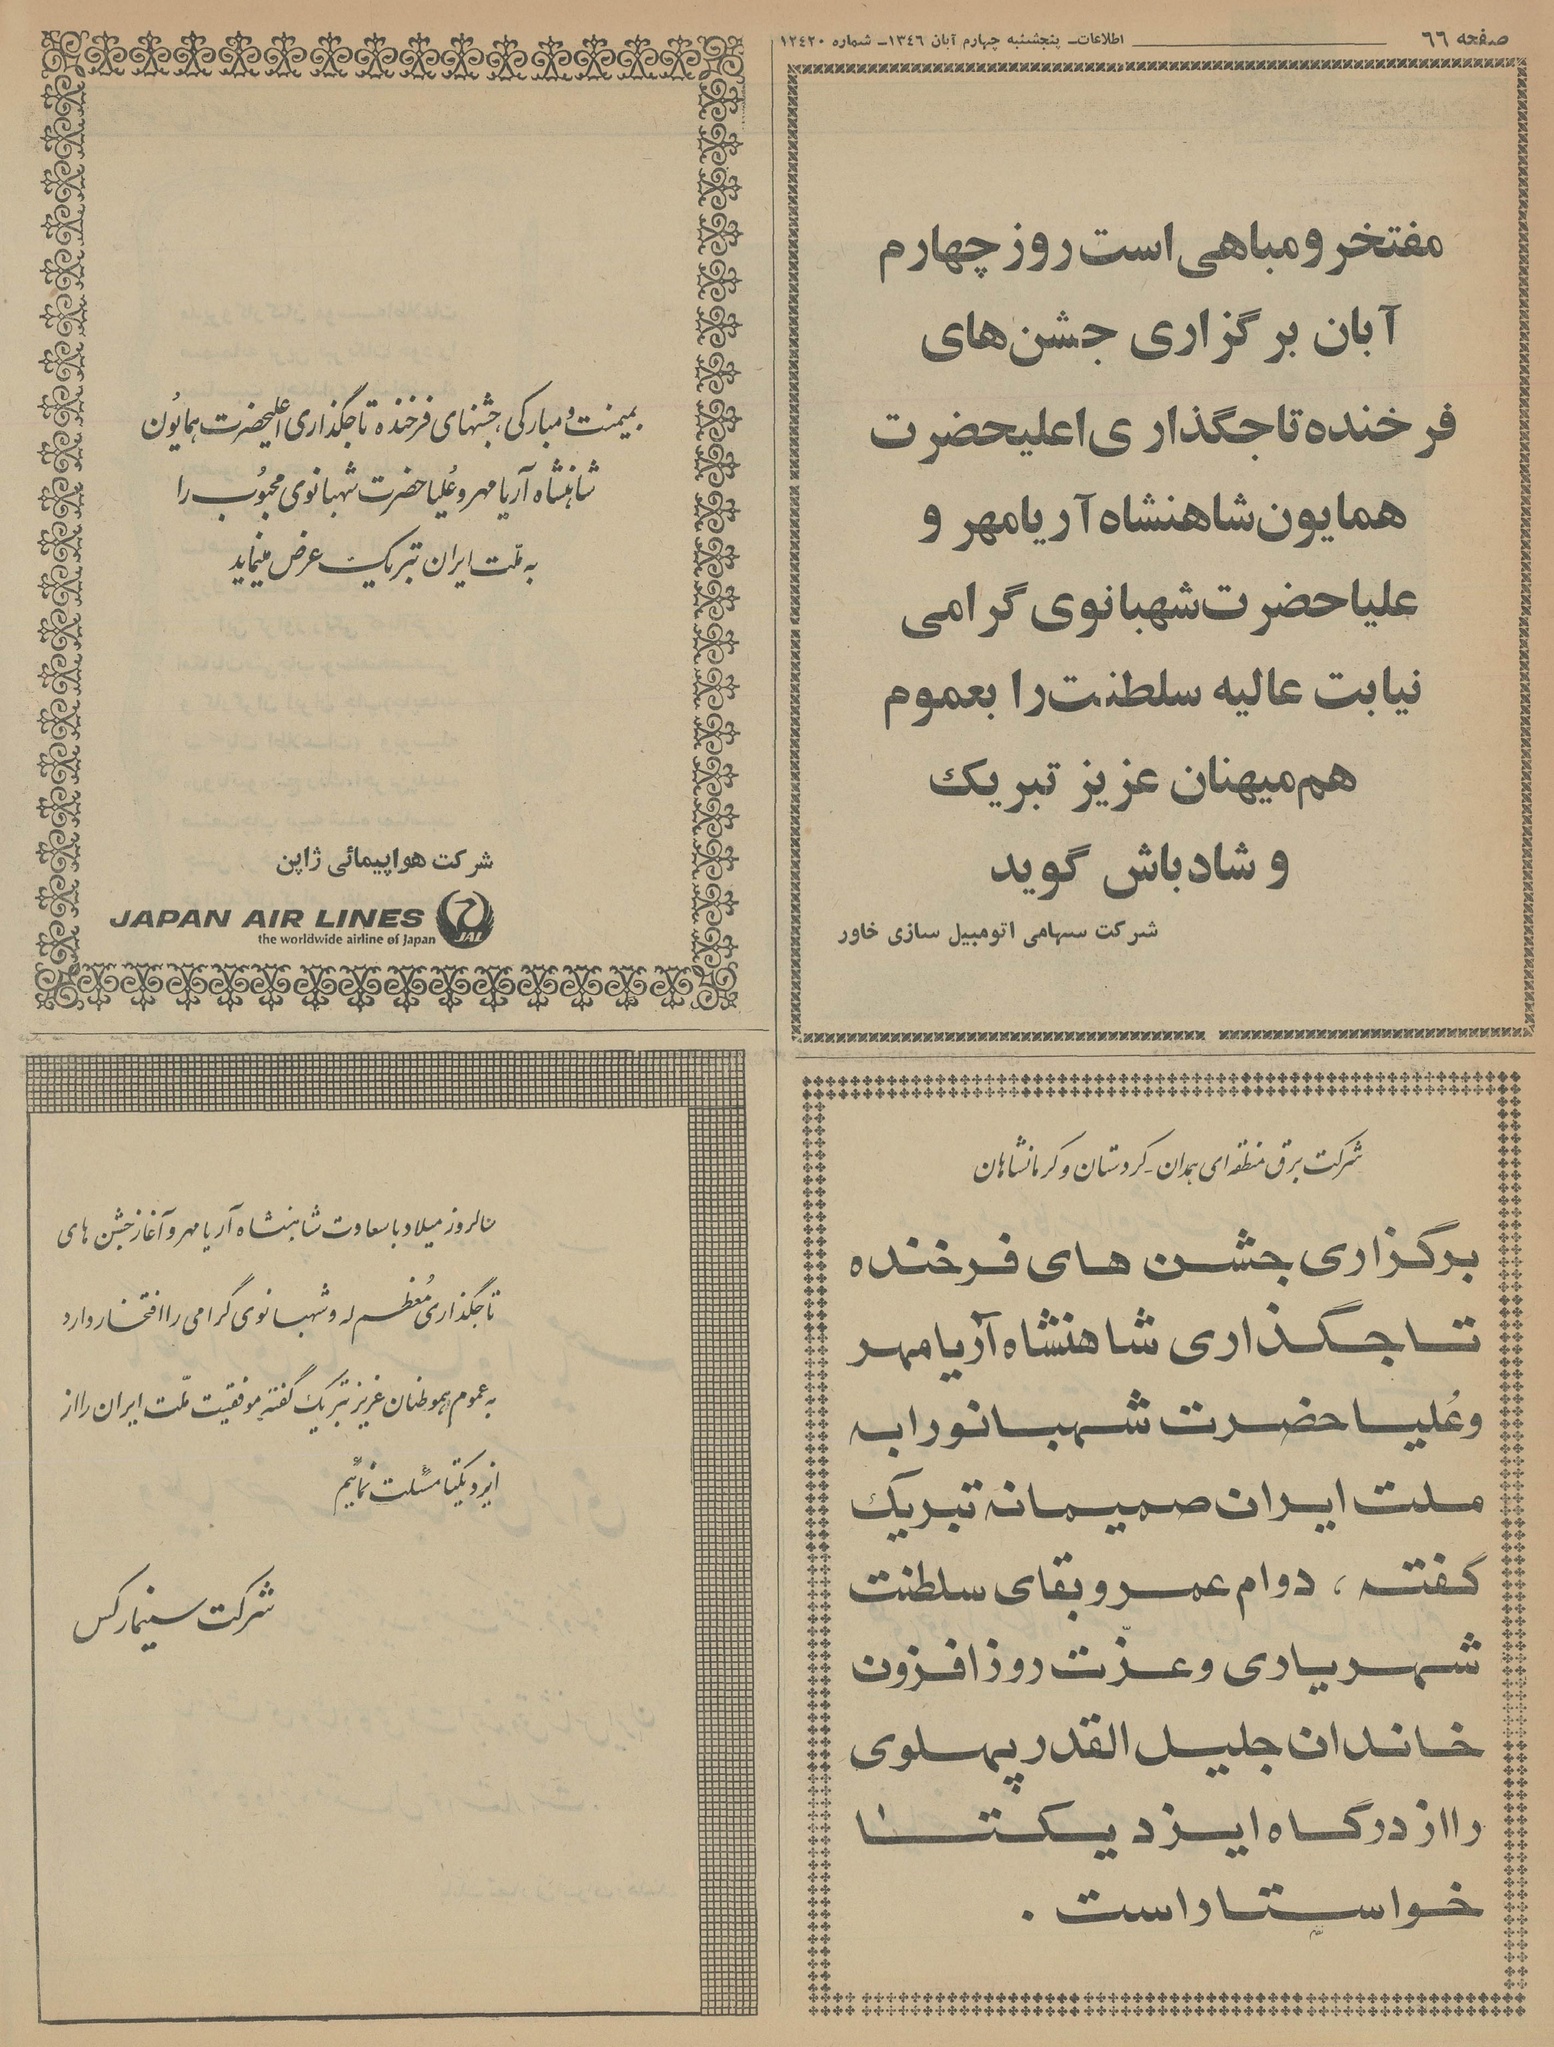 صفحه ٦٦
اطلاعات- پنجشنبه چهارم آبان ١٣٤٦- شماره ١٢٤٢٠
مفتخر و مباهی است روز چهارم
آبان برگزاری جشن‌های
فرخنده تاجگذاری اعلیحضرت
همایون شاهنشاه آریامهر و
علیاحضرت شهبانوی گرامی
نیابت عالیه سلطنت را بعموم
هم‌میهنان عزیز تبریک
و شادباش گوید
شرکت سهامی اتومبیل سازی خاور
بمیمنت و مبارکی جشنهای فرخنده تاجگذاری اعلیحضرت همایون
شاهنشاه آریامهر و عُلیاحضرت شهبانوی محبوُب را
به ملّت ایران تبریک عرض مینماید
شرکت هواپیمائی ژاپن
JAPAN AIR LINES
JAL
the worldwide airline of Japan
شرکت برق منطقه‌ای همدان - کردستان و کرمانشاهان
برگزاری جشن های فرخنده
تاجگذاری شاهنشاه آریامهر
و عُلیاحضرت شهبانو را به
ملت ایران صمیمانه تبریک
گفته ، دوام عمر و بقای سلطنت
شهریاری و عزّت روزافزون
خاندان جلیل القدر پهلوی
را از درگاه ایزد یکتا
خواستار است .
سالروز میلاد با سعادت شاهنشاه آریامهر و آغاز جشن های
تاجگذاری مُعظم له و شهبانوی گرامی را افتخار دارد
به عموم هموطنان عزیز تبریک گفته موفقیت ملّت ایران را از
ایزد یکتا مسئلت نمائیم
شرکت سینما رکس